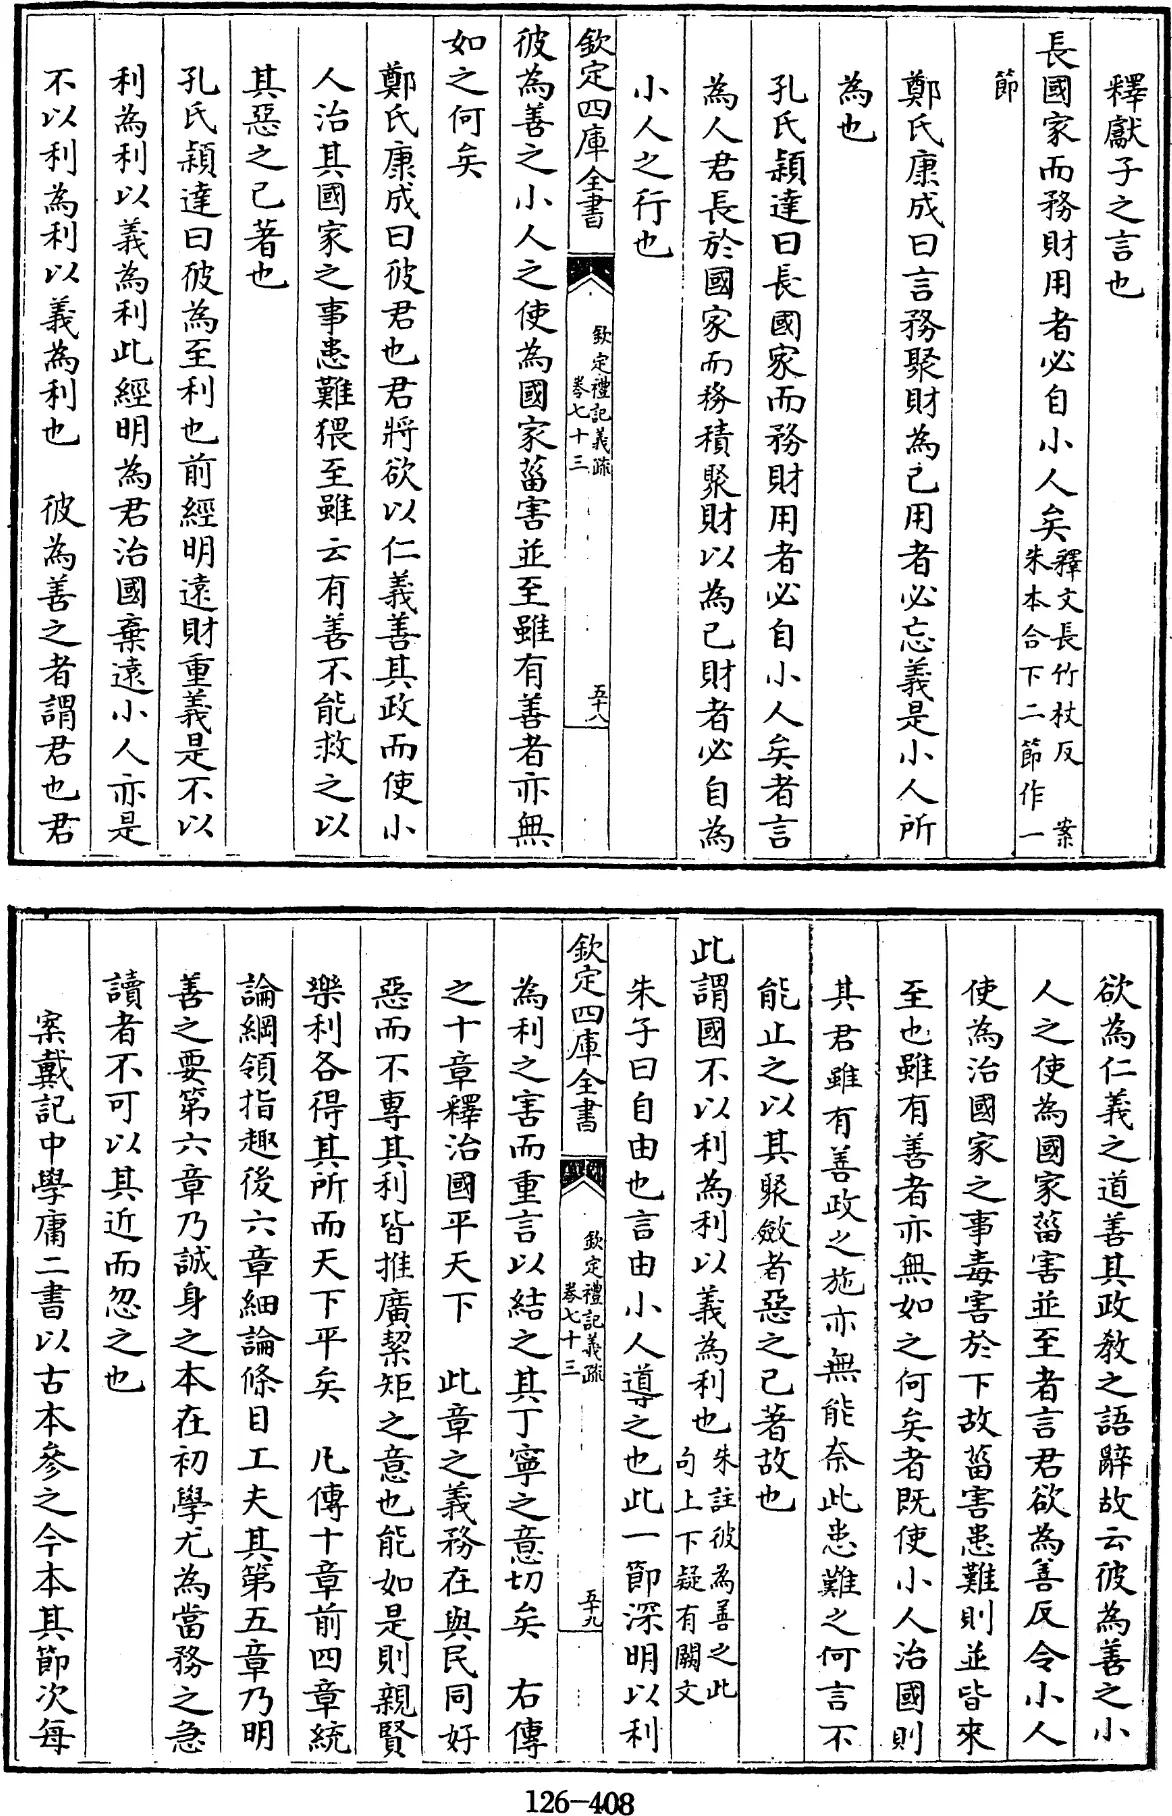 釋獻子之言也
長國家而務財用者必自小人矣釋文長竹杖反 案
朱本合下二節作一
節
鄭氏康成曰言務聚財為己用者必忘義是小人所
為也
孔氏穎達曰長國家而務財用者必自小人矣者言
為人君長於國家而務積聚財以為己財者必自為
小人之行也
欽定四庫全書
欽定禮記義疏
卷七十三
五十八
彼為善之小人之使為國家菑害並至雖有善者亦無
如之何矣
鄭氏康成曰彼君也君將欲以仁義善其政而使小
人治其國家之事患難猥至雖云有善不能救之以
其惡之已著也
孔氏穎達曰彼為至利也前經明遠財重義是不以
利為利以義為利此經明為君治國棄遠小人亦是
不以利為利以義為利也 彼為善之者謂君也君
欲為仁義之道善其政教之語辭故云彼為善之小
人之使為國家菑害並至者言君欲為善反令小人
使為治國家之事毒害於下故菑害患難則並皆來
至也雖有善者亦無如之何矣者既使小人治國則
其君雖有善政之施亦無能奈此患難之何言不
能止之以其聚斂者惡之已著故也
此謂國不以利為利以義為利也朱註彼為善之此
句上下疑有闕文
朱子曰自由也言由小人導之也此一節深明以利
欽定四庫全書
欽定禮記義疏
卷七十三
五十九
為利之害而重言以結之其丁寧之意切矣 右傳
之十章釋治國平天下 此章之義務在與民同好
惡而不專其利皆推廣絜矩之意也能如是則親賢
樂利各得其所而天下平矣 凡傳十章前四章統
論綱領指趣後六章細論條目工夫其第五章乃明
善之要第六章乃誠身之本在初學尤為當務之急
讀者不可以其近而忽之也
案戴記中學庸二書以古本參之今本其節次每
126-408